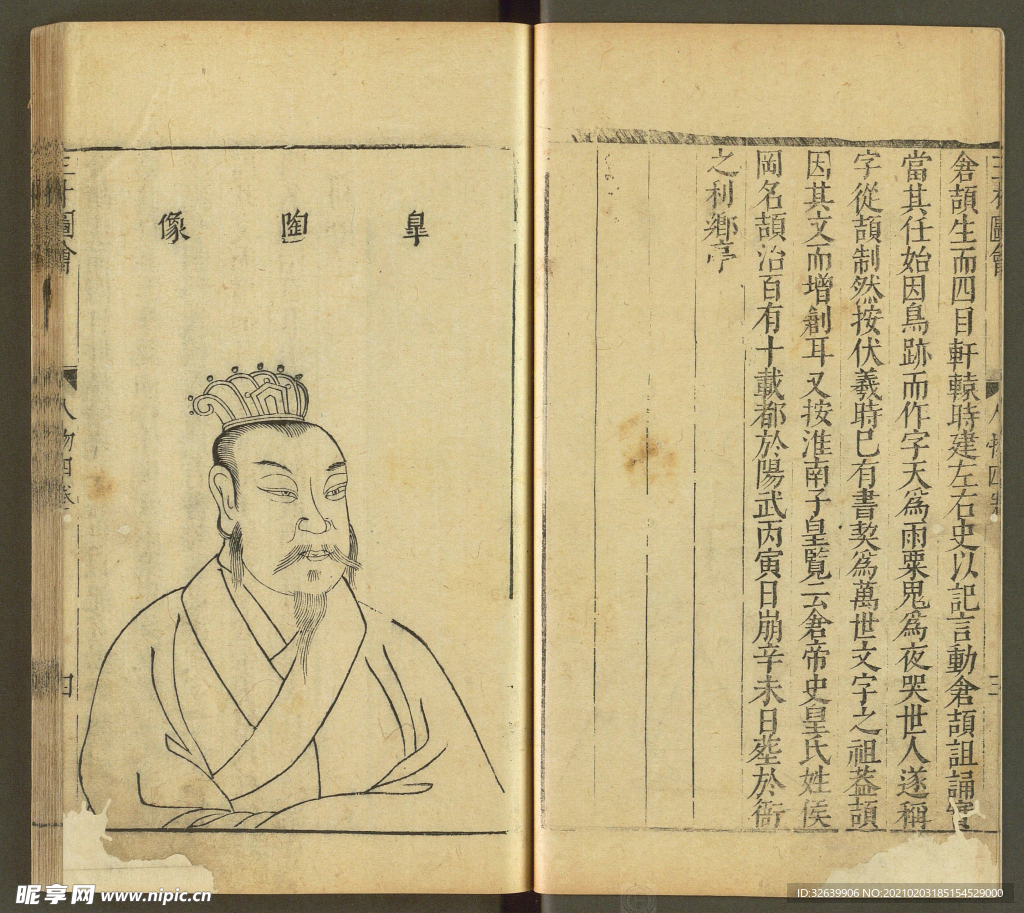 三才圖會
人物四卷
三
倉頡生而四目軒轅時建左右史以記言動倉頡詛誦實
當其任始因鳥跡而作字天爲雨粟鬼爲夜哭世人遂稱
字從頡制然按伏羲時已有書契爲萬世文字之祖葢頡
因其文而增創耳又按淮南子皇覽云倉帝史皇氏姓侯
岡名頡治百有十載都於陽武丙寅日崩辛未日塟於衙
之利鄉亭
皐陶像
三才圖會
人物四卷
四
昵享网 www.nipic.cn
ID:32639906 NO:20210203185154529000